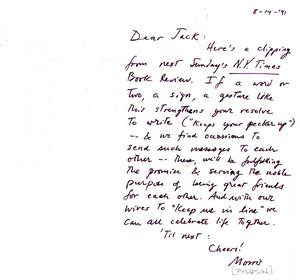 8-14-'91
Dear Jack:
Here's a clipping
from next Sunday's N.Y. Times
Book Review. If a word or
two, a sign, a gesture like
this strengthens your resolve
to write ("Keeps your pecker up")
-- & we find occasions to
send such messages to each
other -- then, we'll be fulfilling
the promise & serving the noble
purpose of being great friends
for each other. And with our
wives to "keep us in line" we
can all celebrate life together.
'Til next:
Cheers!
Morris